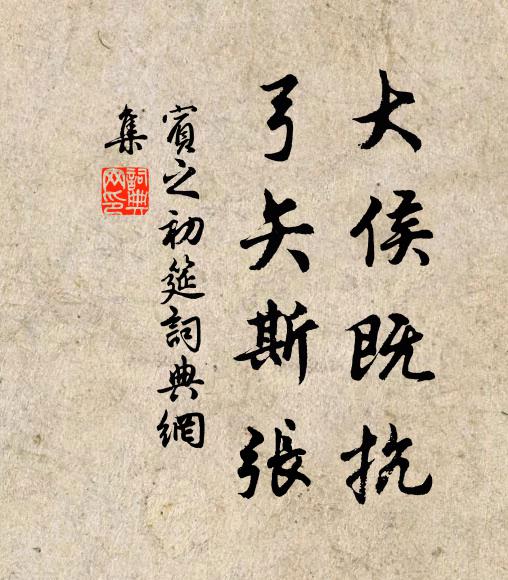 大侯既抗
弓矢斯張
賓之初筵詞典網
集
詞典
网印